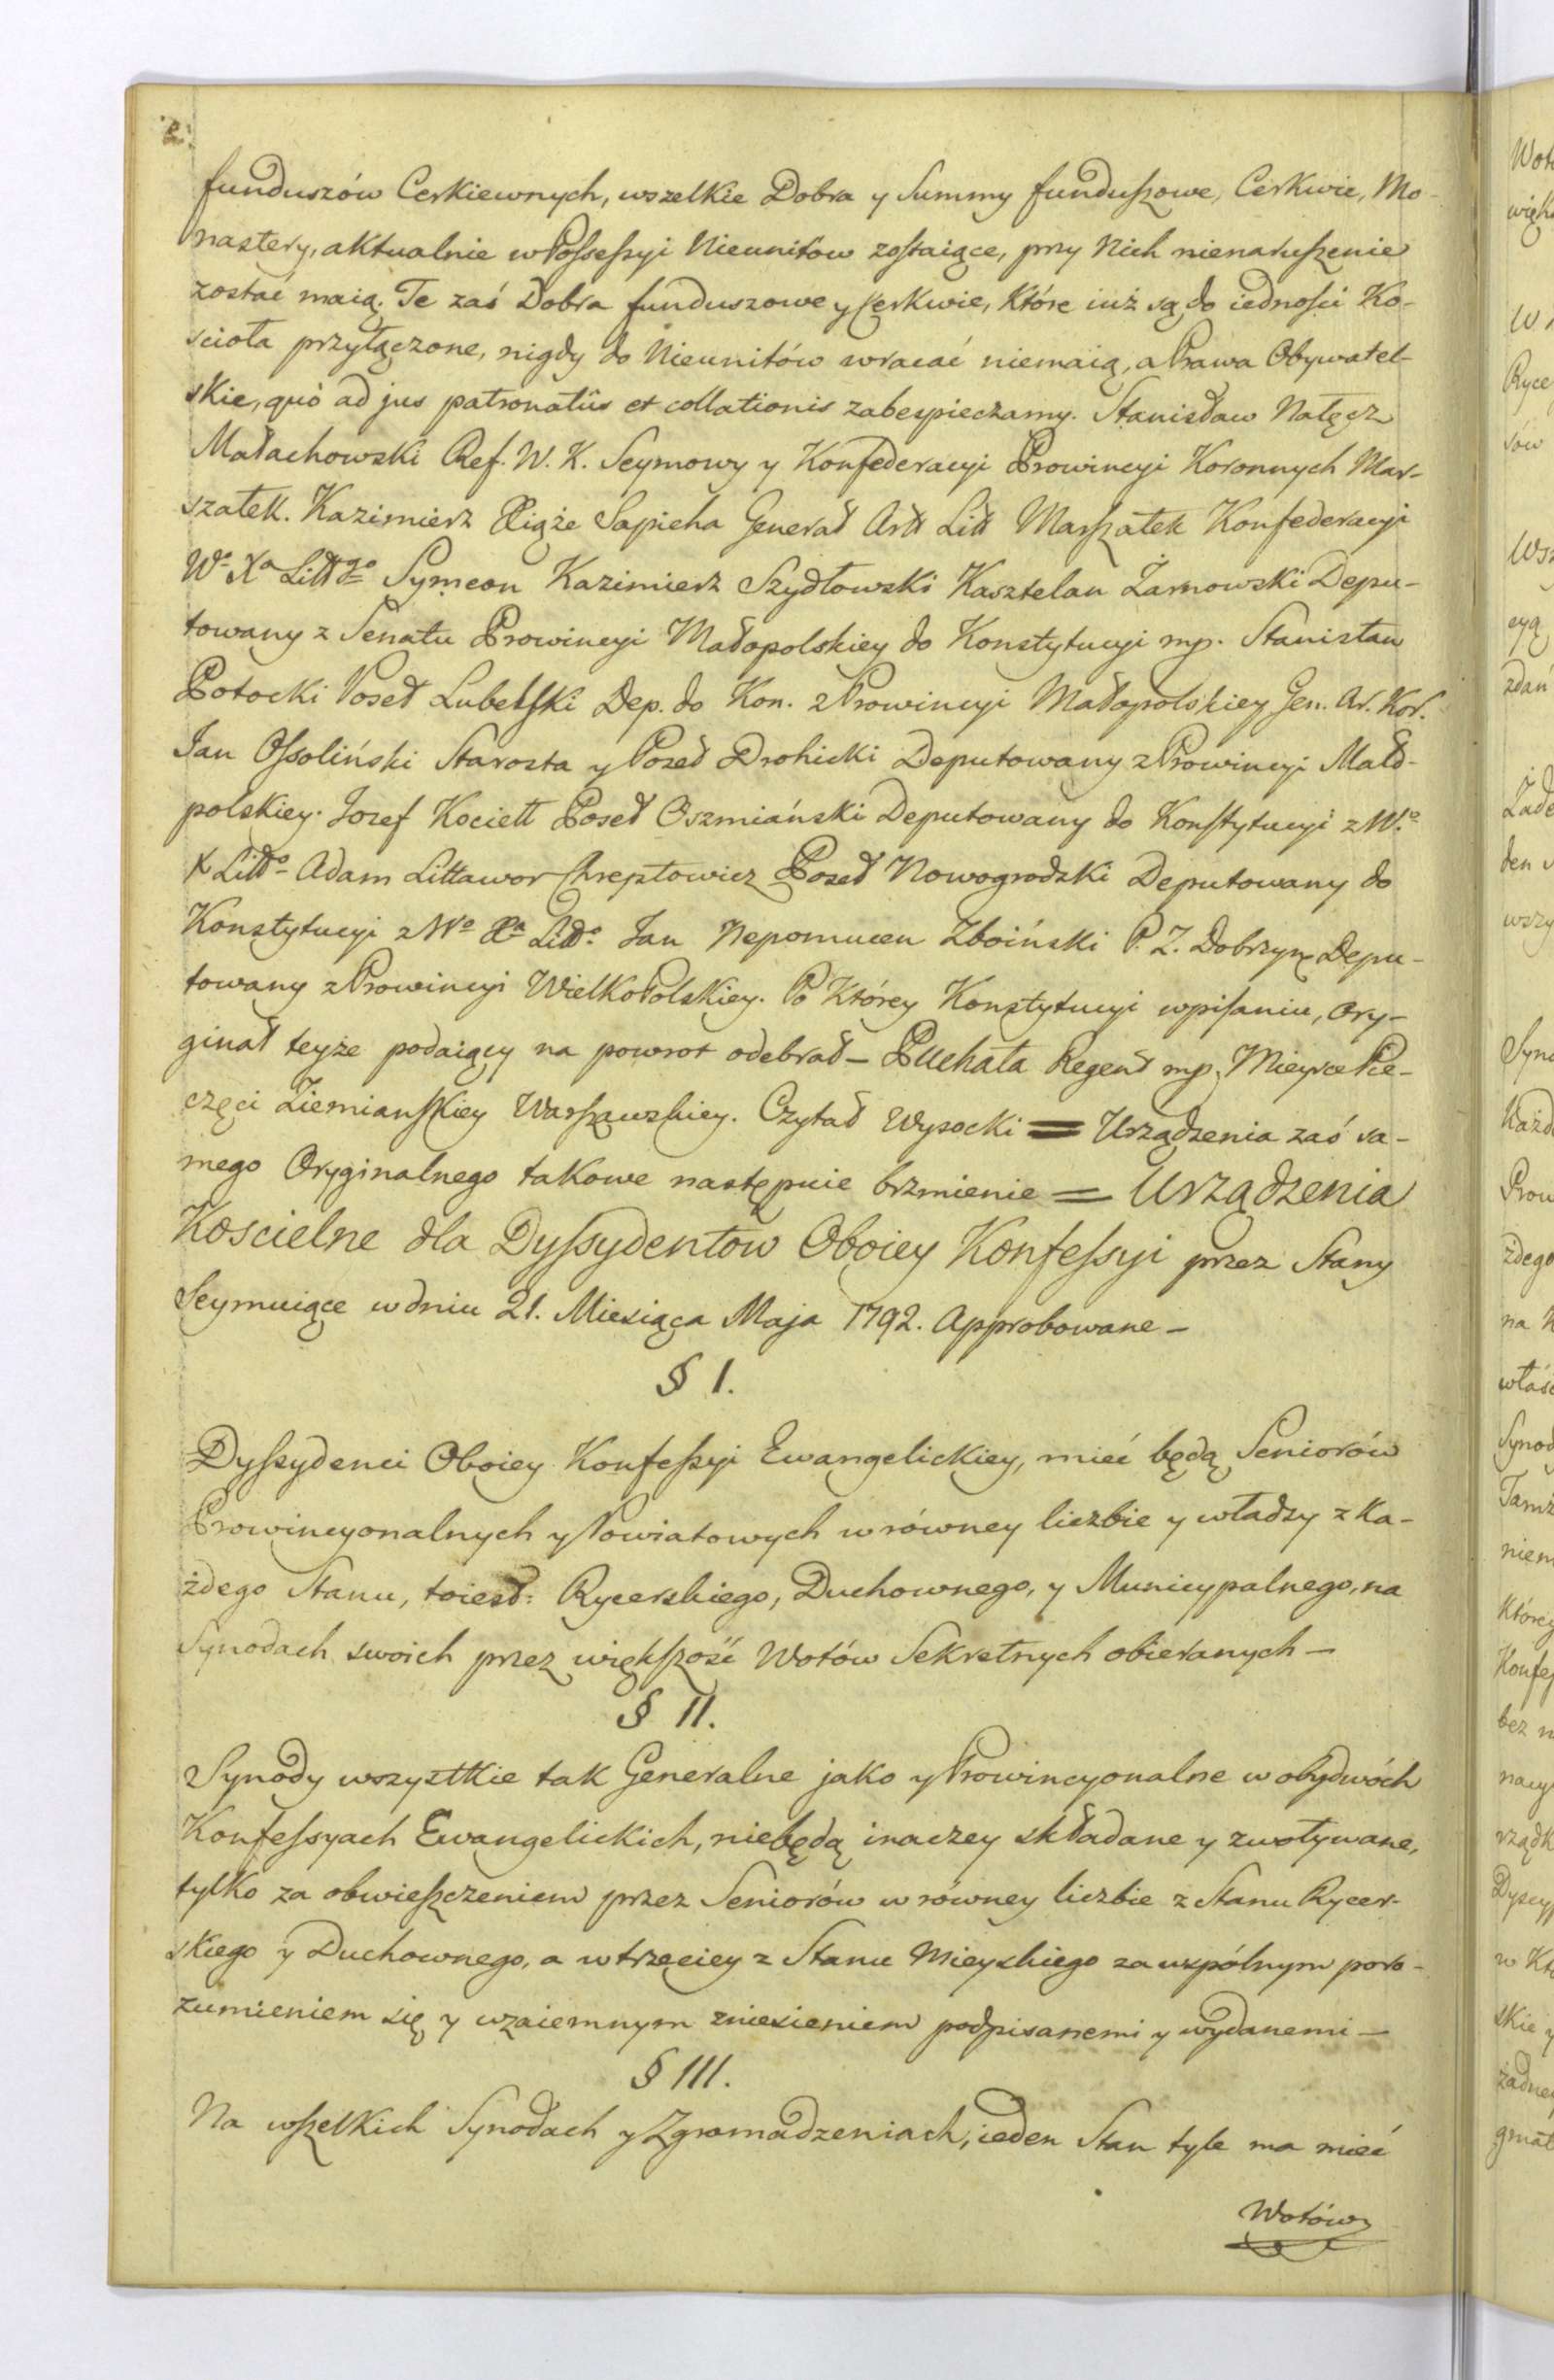 2.
funduszów Cerkiewnych, wszelkie Dobra y Summy funduszowe, Cerkwie, Mo-
nastery, aktualnie w Possessyi Nieunitow zostaiące, przy Nich nienaruszenie
zostać maią. Te zaś Dobra funduszowe y Cerkwie, które iuż są do iedności Ko-
scioła przyłączone, nigdy do Nieunitów wracać niemaią, a Prawa Obywatel-
skie, quò ad jus patronatûs et collationis zabespieczamy. Stanisław Nałęcz
Małachowski Ref. W. K. Seymowy y Konfederacyi Prowincyi Koronnych Mar-
szałek. Kazimierz Xiąże Sapieha Generał Artt Litt Marszałek Konfederacyi
Wo Xa Littgo Symeon Kazimierz Szydłowski Kasztelan Żarnowski Depu-
towany z Senatu Prowincyi Małopolskiey do Konstytucyi mp. Stanisław
Potocki Poseł Lubelski Dep. do Kon. z Prowincyi Małopolskiey Gen. Ar. Kor.
Jan Ossoliński Starosta y Poseł Drohicki Deputowany z Prowincyi Mało-
polskiey. Jozef Kociełł Poseł Oszmiański Deputowany do Konstytucyi z W.o
X Litto Adam Littawor Chreptowicz Poseł Nowogrodzki Deputowany do
Konstytucyi z Wo Xa Litto. Jan Nepomucen Zboiński P. Z. Dobrzyn Depu-
towany z Prowincyi WielkoPolskiey. Po Którey Konstytucyi wpisaniu, Ory-
ginał teyże podaiący na powrot odebrał – Puchała Regent mp. Mieysce Pie-
częci Ziemianskiey Warszawskiey. Czytał Wysocki = Urządzenia zaś sa-
mego Oryginalnego takowe następuie brzmienie = Urządzenia
Koscielne dla Dyssydentow Oboiey Konfessyi przez Stany
Seymuiące w dniu 21. Miesiąca Maja 1792. Approbowane –
§ I.
Dyssydenci Oboiey Konfessyi Ewangelickiey, mieć będą Seniorów
Prowincyonalnych y Powiatowych w równey liczbie y władzy z Ka-
żdego Stanu, toiest: Rycerskiego, Duchownego, y Municypalnego, na
Synodach swoich przez większość Wotów Sekretnych obieranych –
§ II.
Synody wszystkie tak Generalne jako y Prowincyonalne w obydwóch
Konfessyach Ewangelickich, niebędą inaczey składane y zwoływane,
tylko za obwieszczeniem przez Seniorów w równey liczbie z Stanu Rycer-
skiego y Duchownego, a w trzeciey z Stanu Mieyskiego za wspólnym poro-
zumieniem się y wzaiemnym zniesieniem podpisanemi y wydanemi –
§ III.
Na wszelkich Synodach y Zgromadzeniach, ieden Stan tyle ma mieć
Wotów